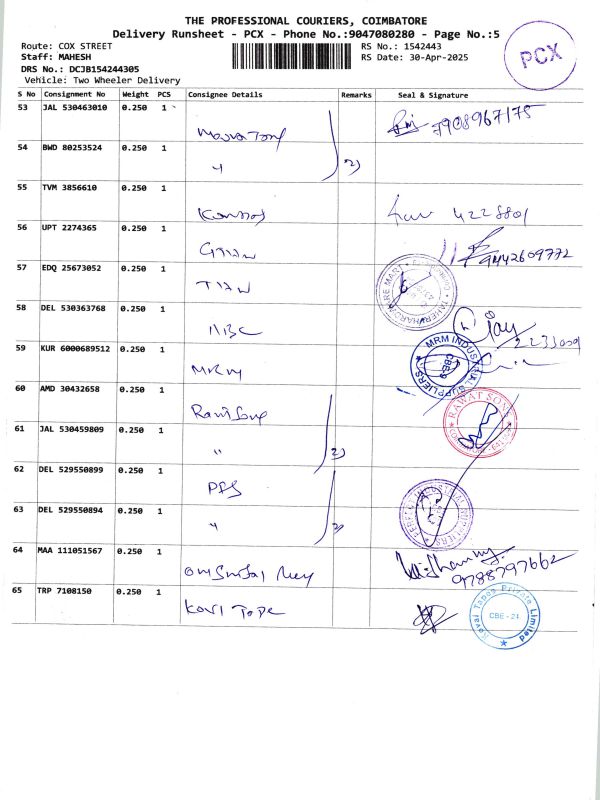 THE PROFESSIONAL COURIERS, COIMBATORE
Delivery Runsheet - PCX - Phone No.:9047080280 - Page No.:5
Route: COX STREET
Staff: MAHESH
DRS No.: DCJB154244305
Vehicle: Two Wheeler Delivery
RS No.: 1542443
RS Date: 30-Apr-2025
PCX
S No Consignment No Weight PCS Consignee Details Remarks Seal & Signature
53 JAL 530463010 0.250 1 7908967175
54 BWD 80253524 0.250 1 " 2)
55 TVM 3856610 0.250 1 4228801
56 UPT 2274365 0.250 1 9442609772
57 EDQ 25673052 0.250 1
58 DEL 530363768 0.250 1 NBC 2233009
59 KUR 6000689512 0.250 1 MRM MRM INDUSTRIAL SUPPLIERS CBE-9
60 AMD 30432658 0.250 1 RAWAT SONS
61 JAL 530459809 0.250 1 " 2)
62 DEL 529550899 0.250 1 PFS
63 DEL 529550894 0.250 1 " 2)
64 MAA 111051567 0.250 1 9788797662
65 TRP 7108150 0.250 1 Kovi Tape
Kovai Tapes Private Limited
CBE - 21.